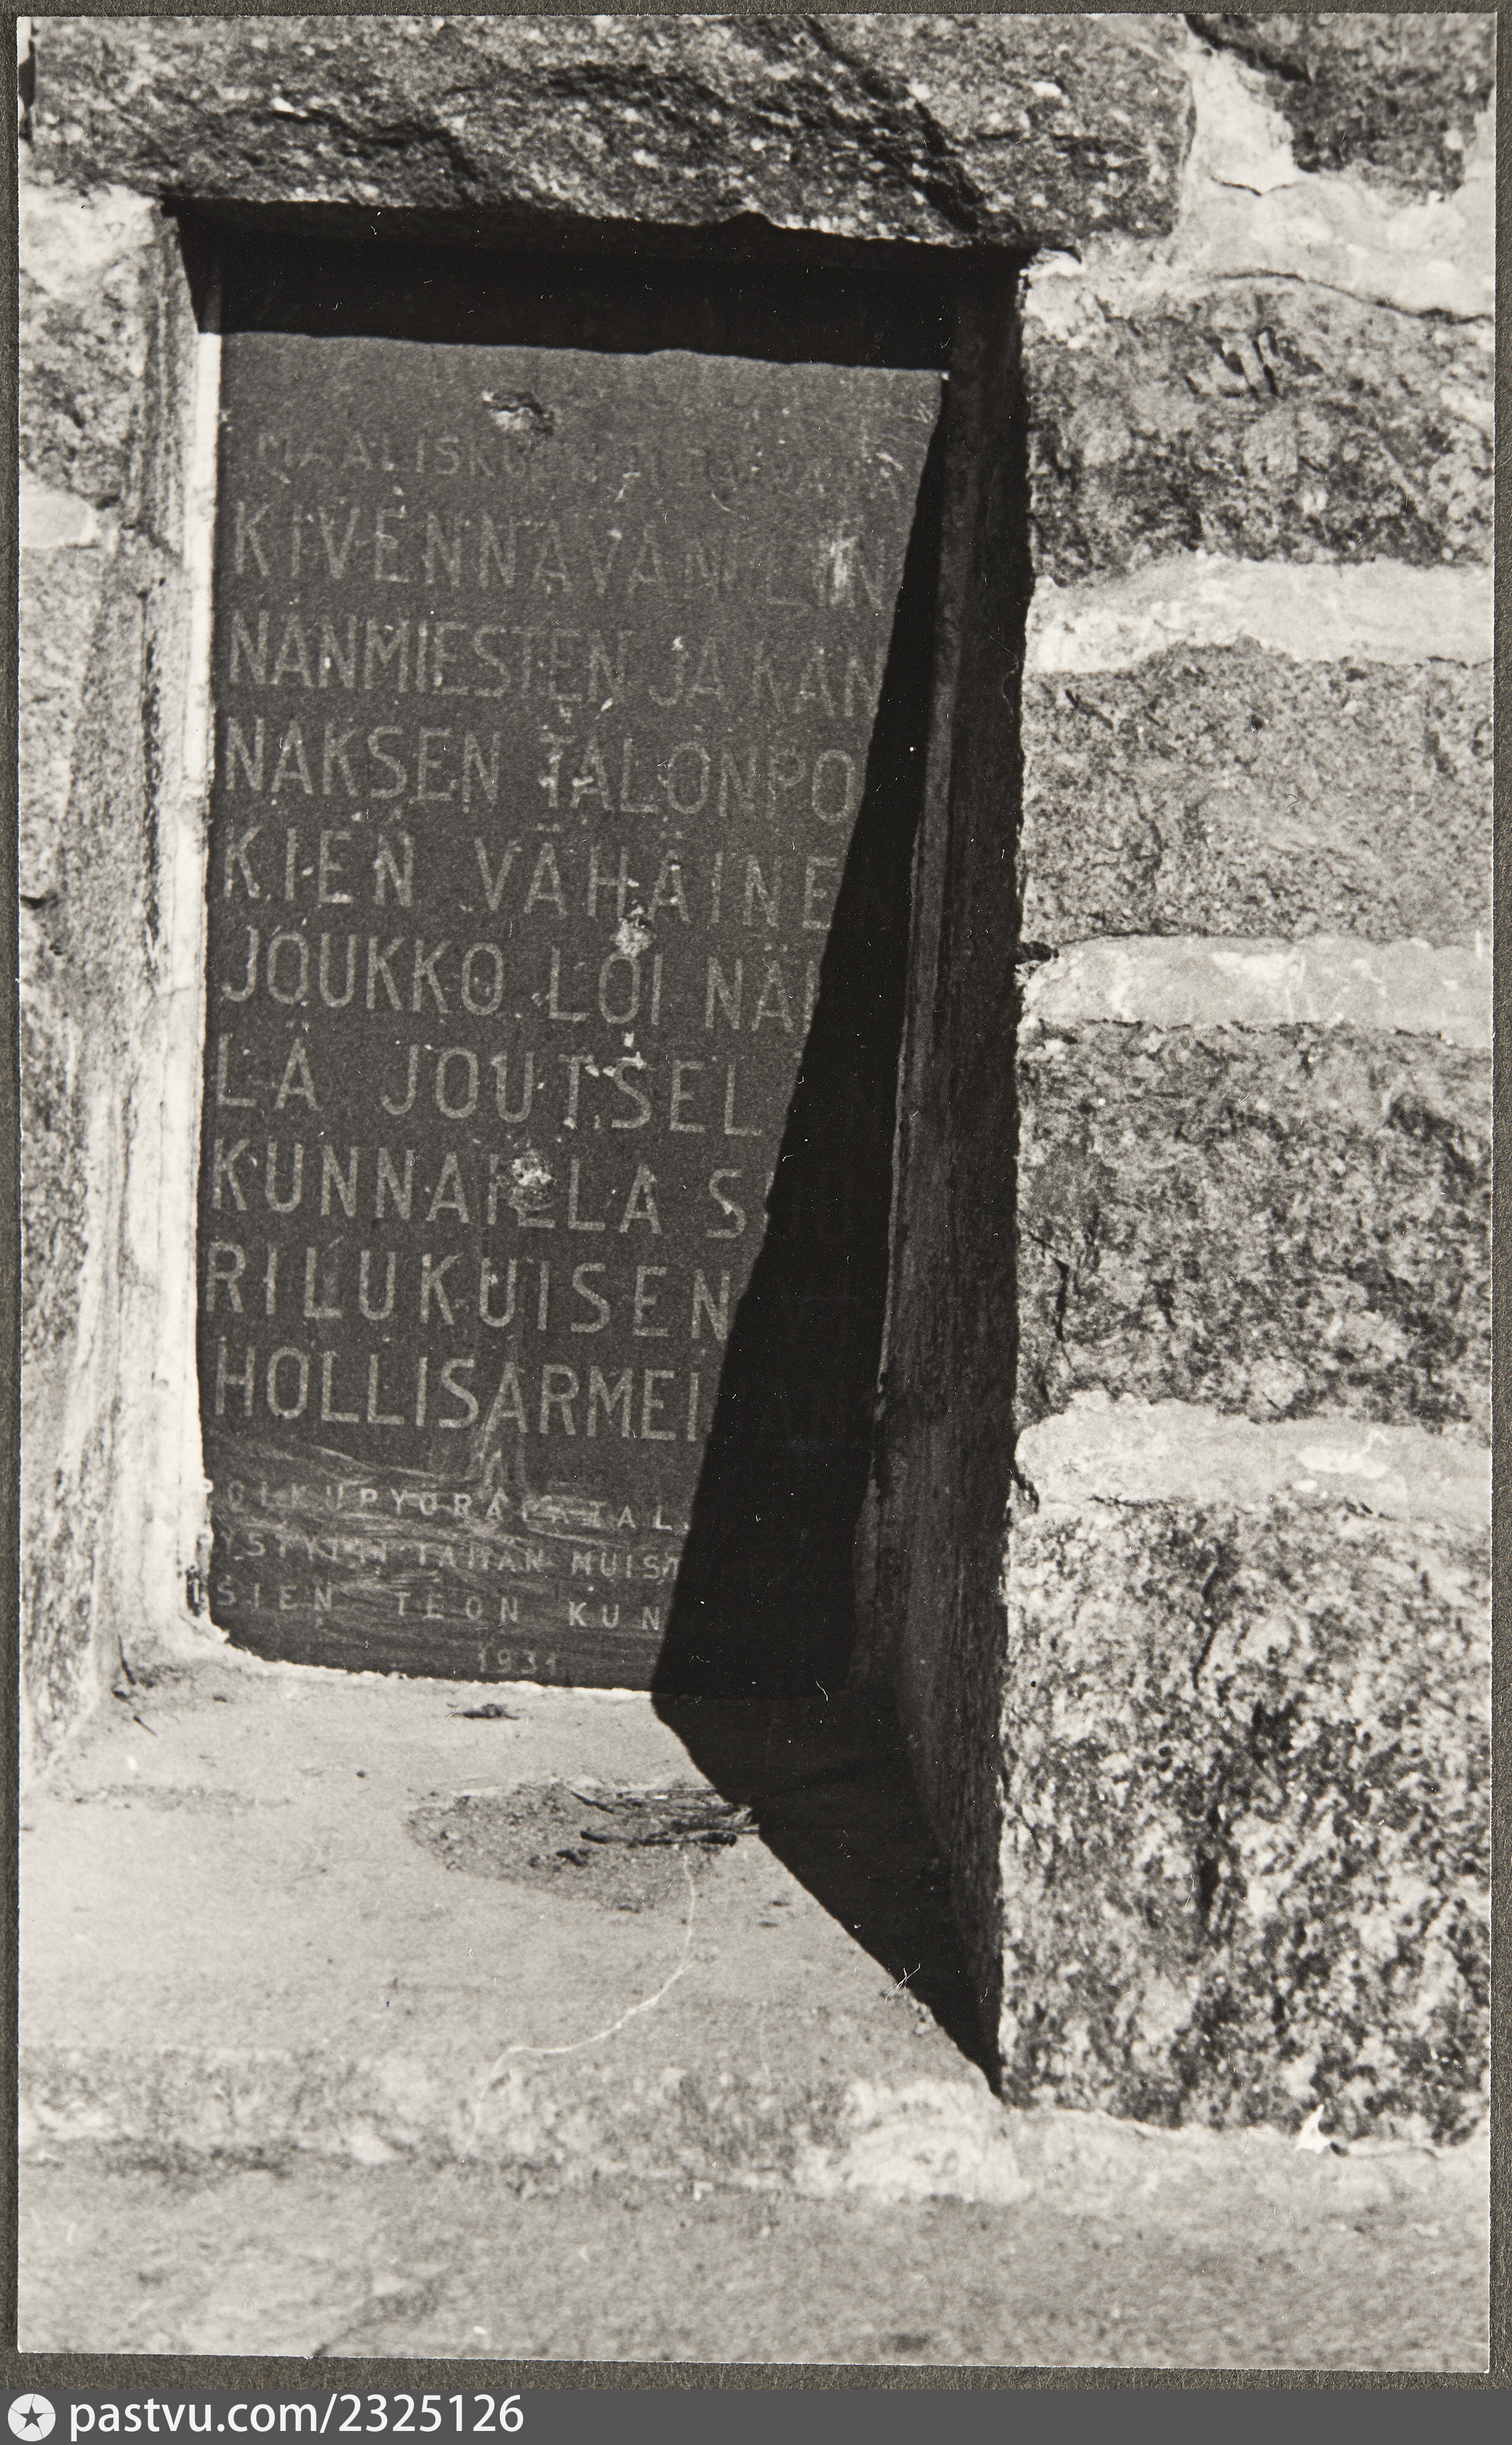 MAALISKUN
KIVENNAVAN LIN
NANMIESTEN JA KAN
NAKSEN TALONPO
KIEN VÄHÄINEN
JOUKKO LÖI NÄI
LÄ JOUTSEL
KUNNAILLA SUU
RILUKUISEN
HOLLISARMEIJAN
POLKUPYÖRÄPATAL
PYSTYTTI TÄMÄN MUIST
ISIEN TEON KUN
1931
pastvu.com/2325126